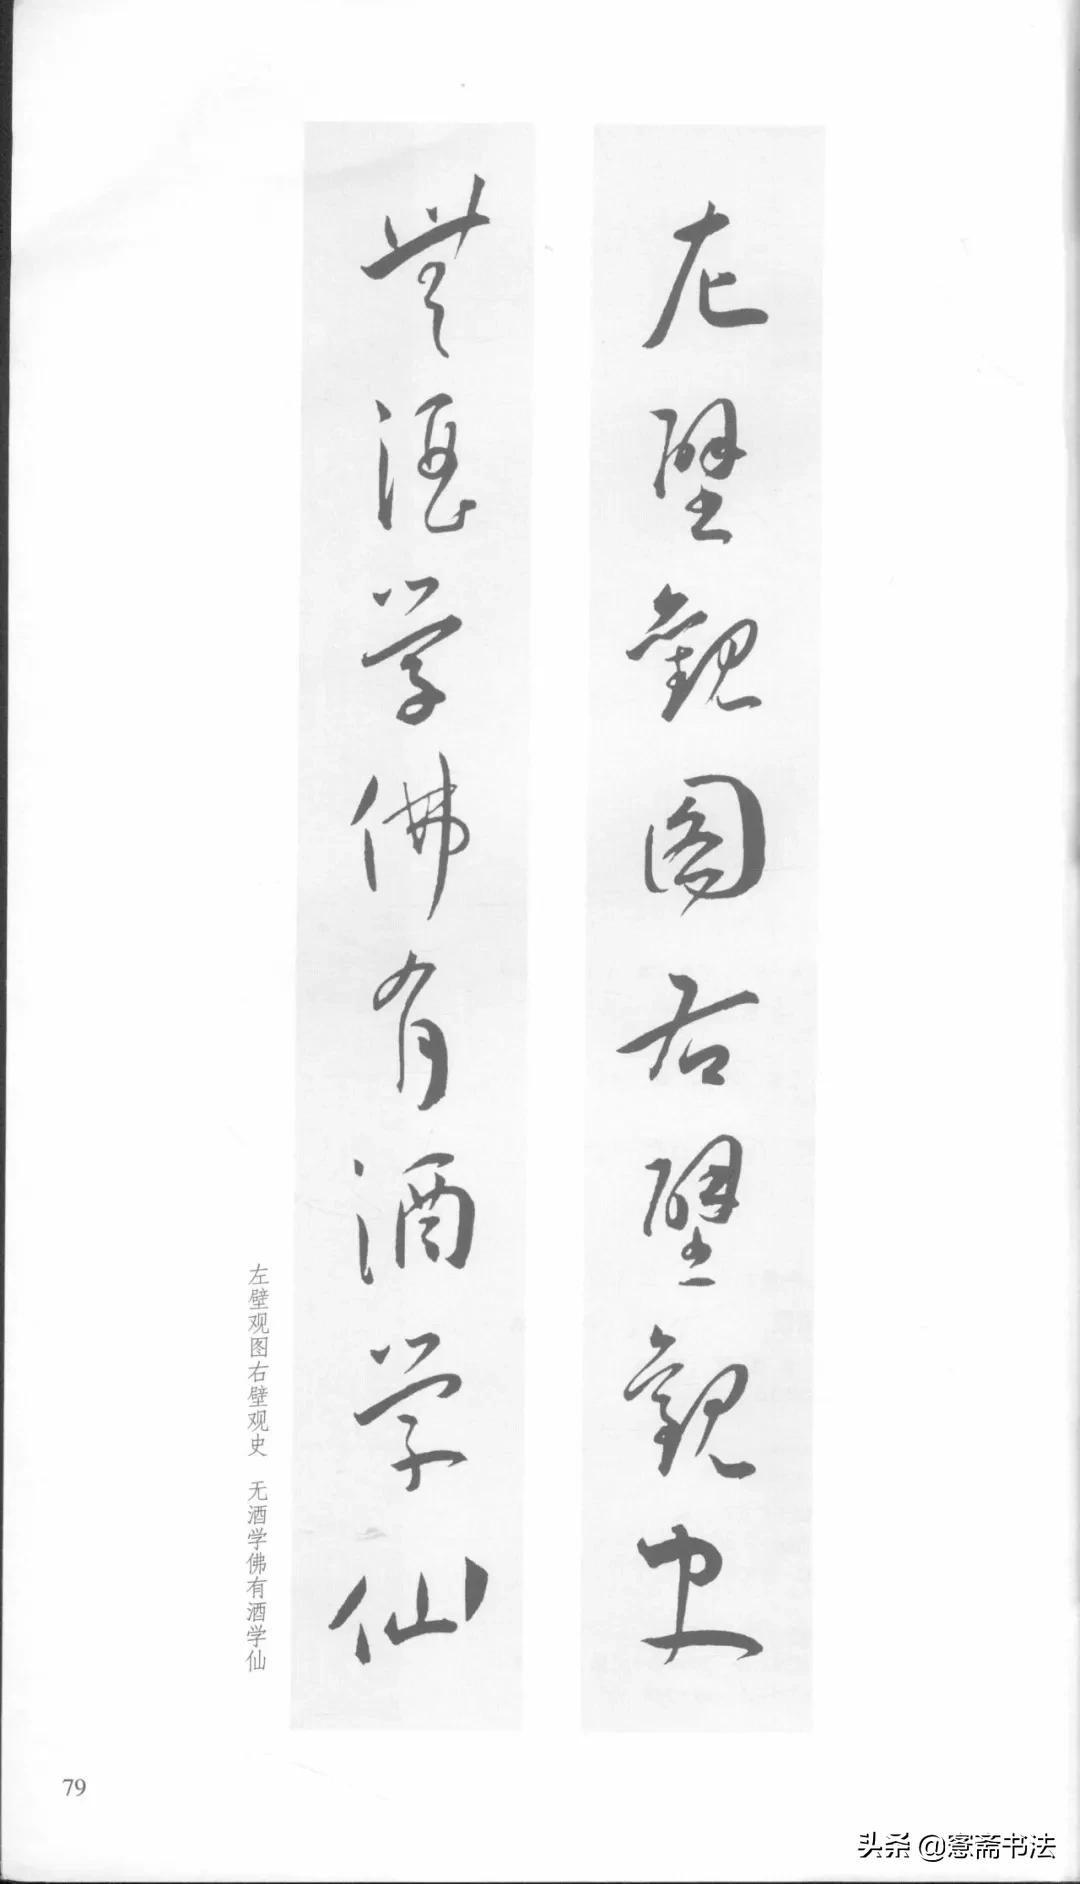 左壁觀图右壁觀史
無酒学佛有酒学仙
左壁观图右壁观史 无酒学佛有酒学仙
79
头条 @窓斋书法